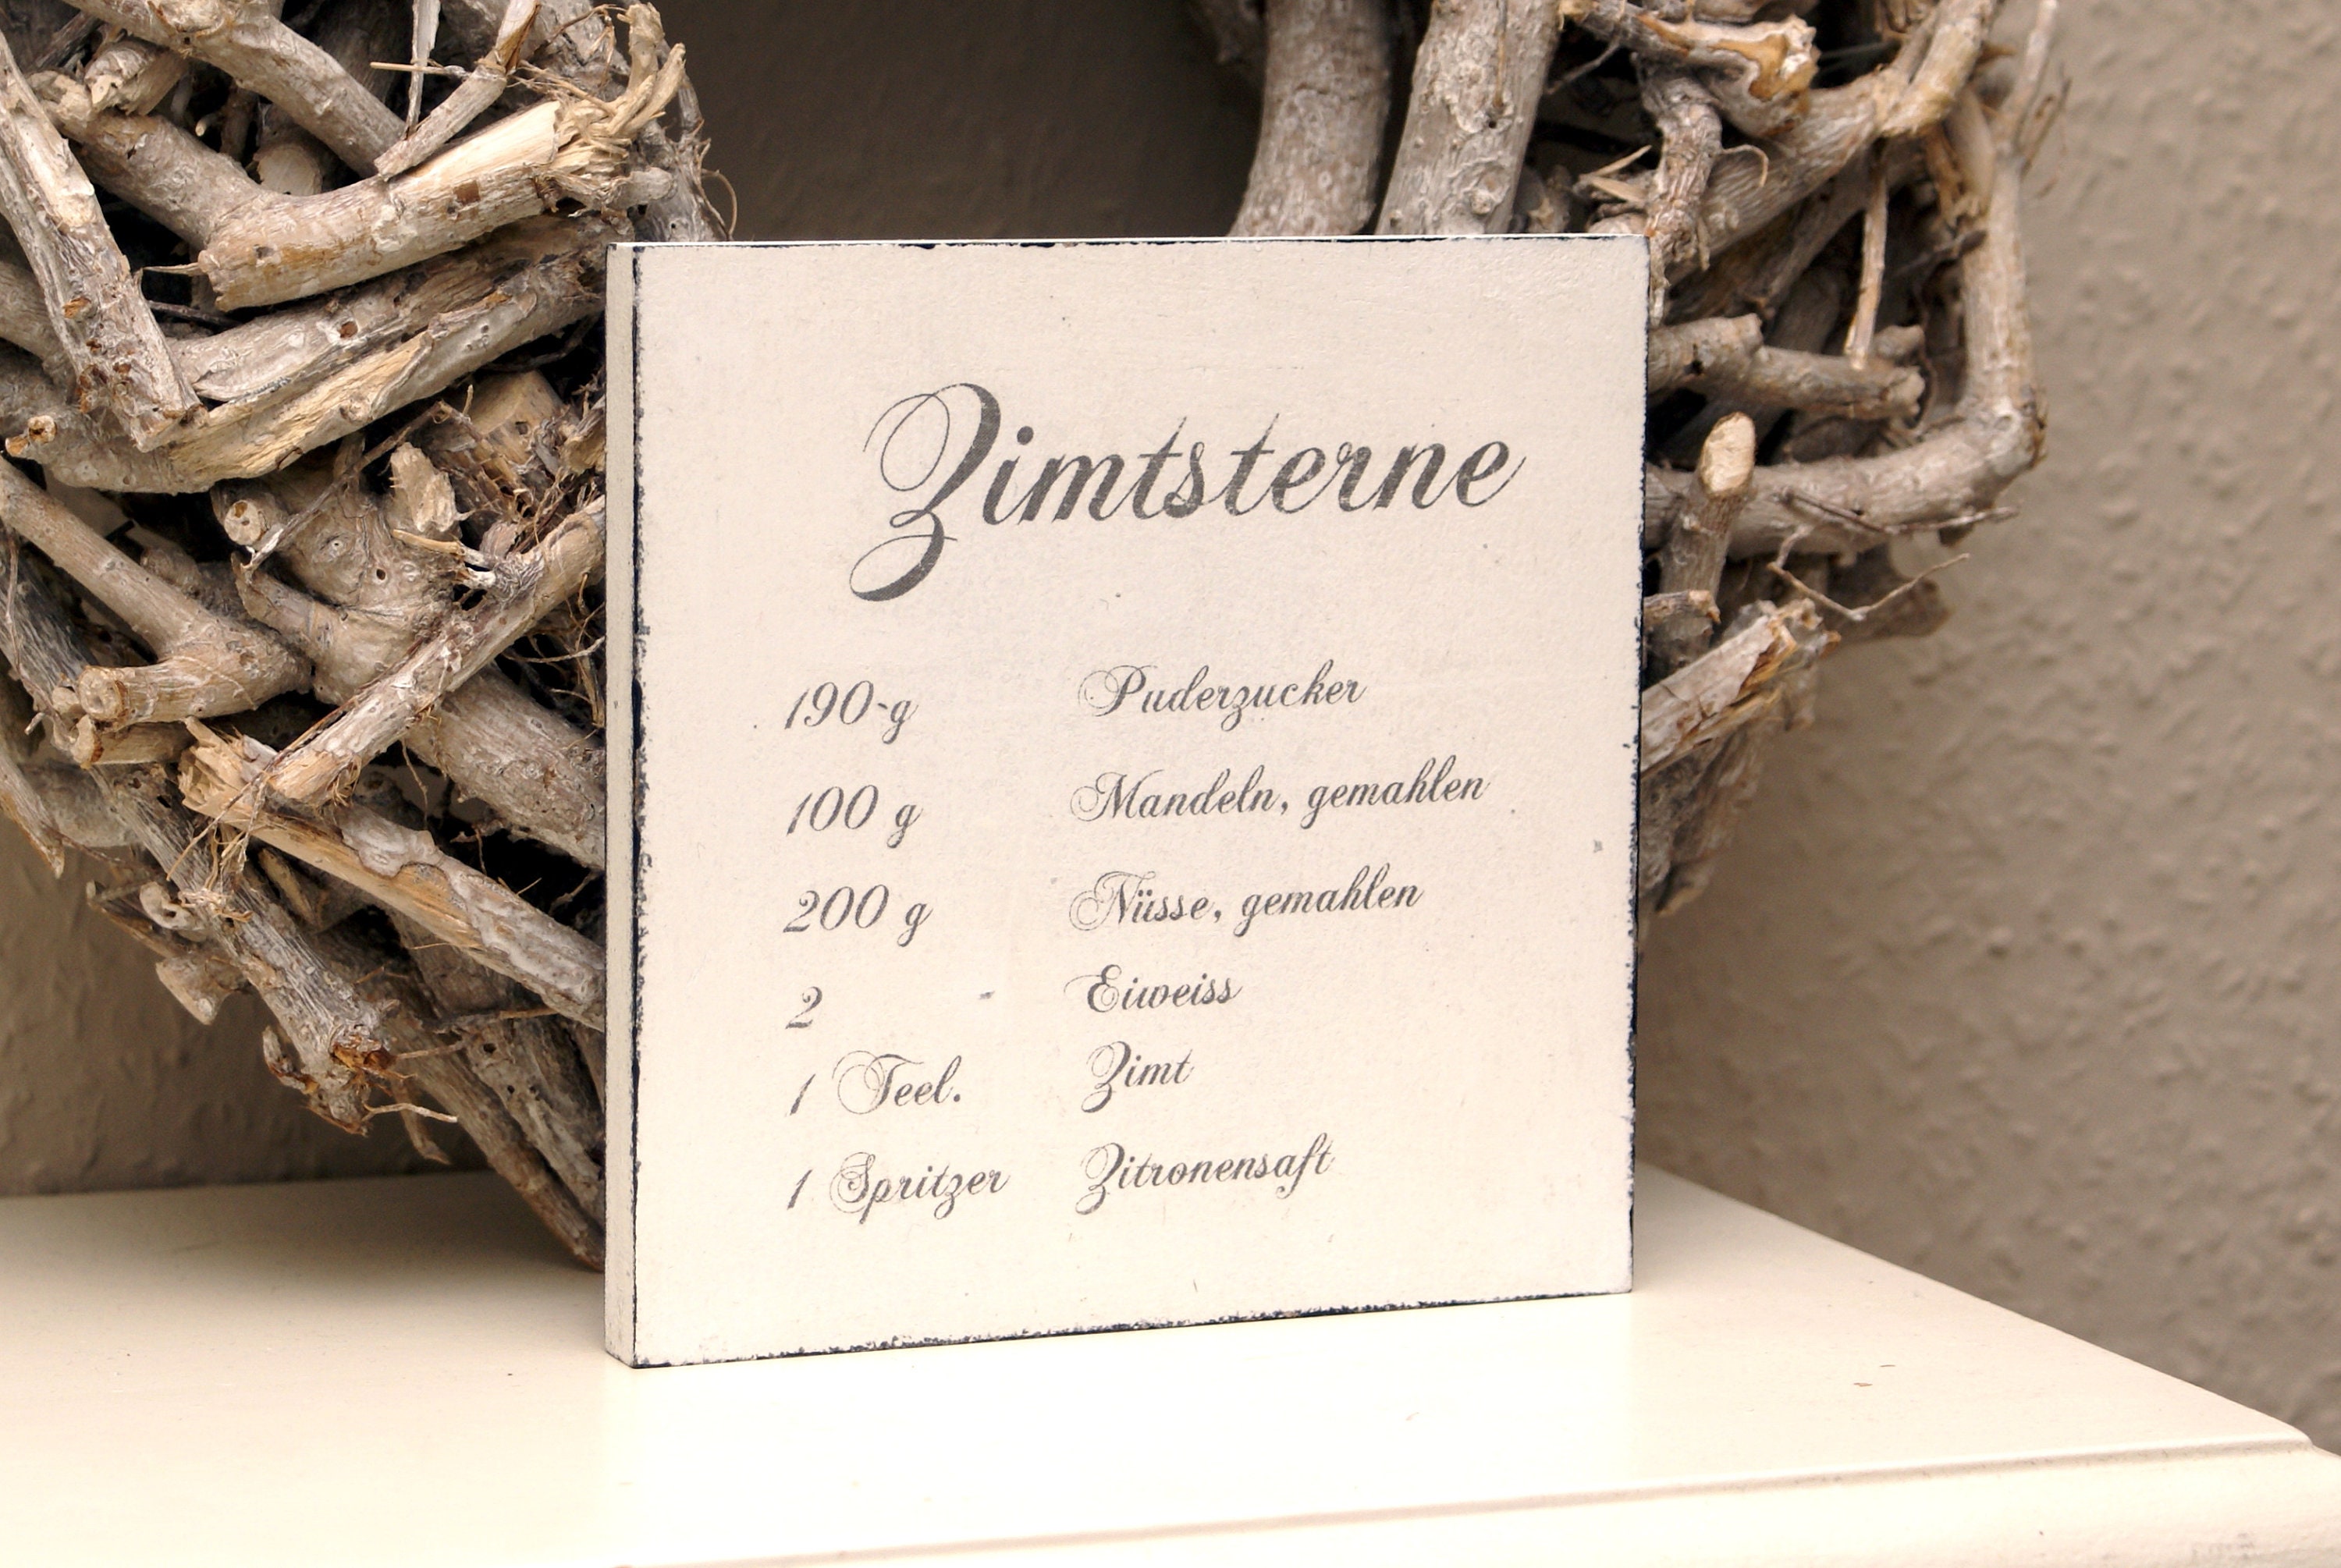 Zimtsterne
190-g Puderzucker
100 g Mandeln, gemahlen
200 g Nüsse, gemahlen
2 Eiweiss
1 Teel. Zimt
1 Spritzer Zitronensaft